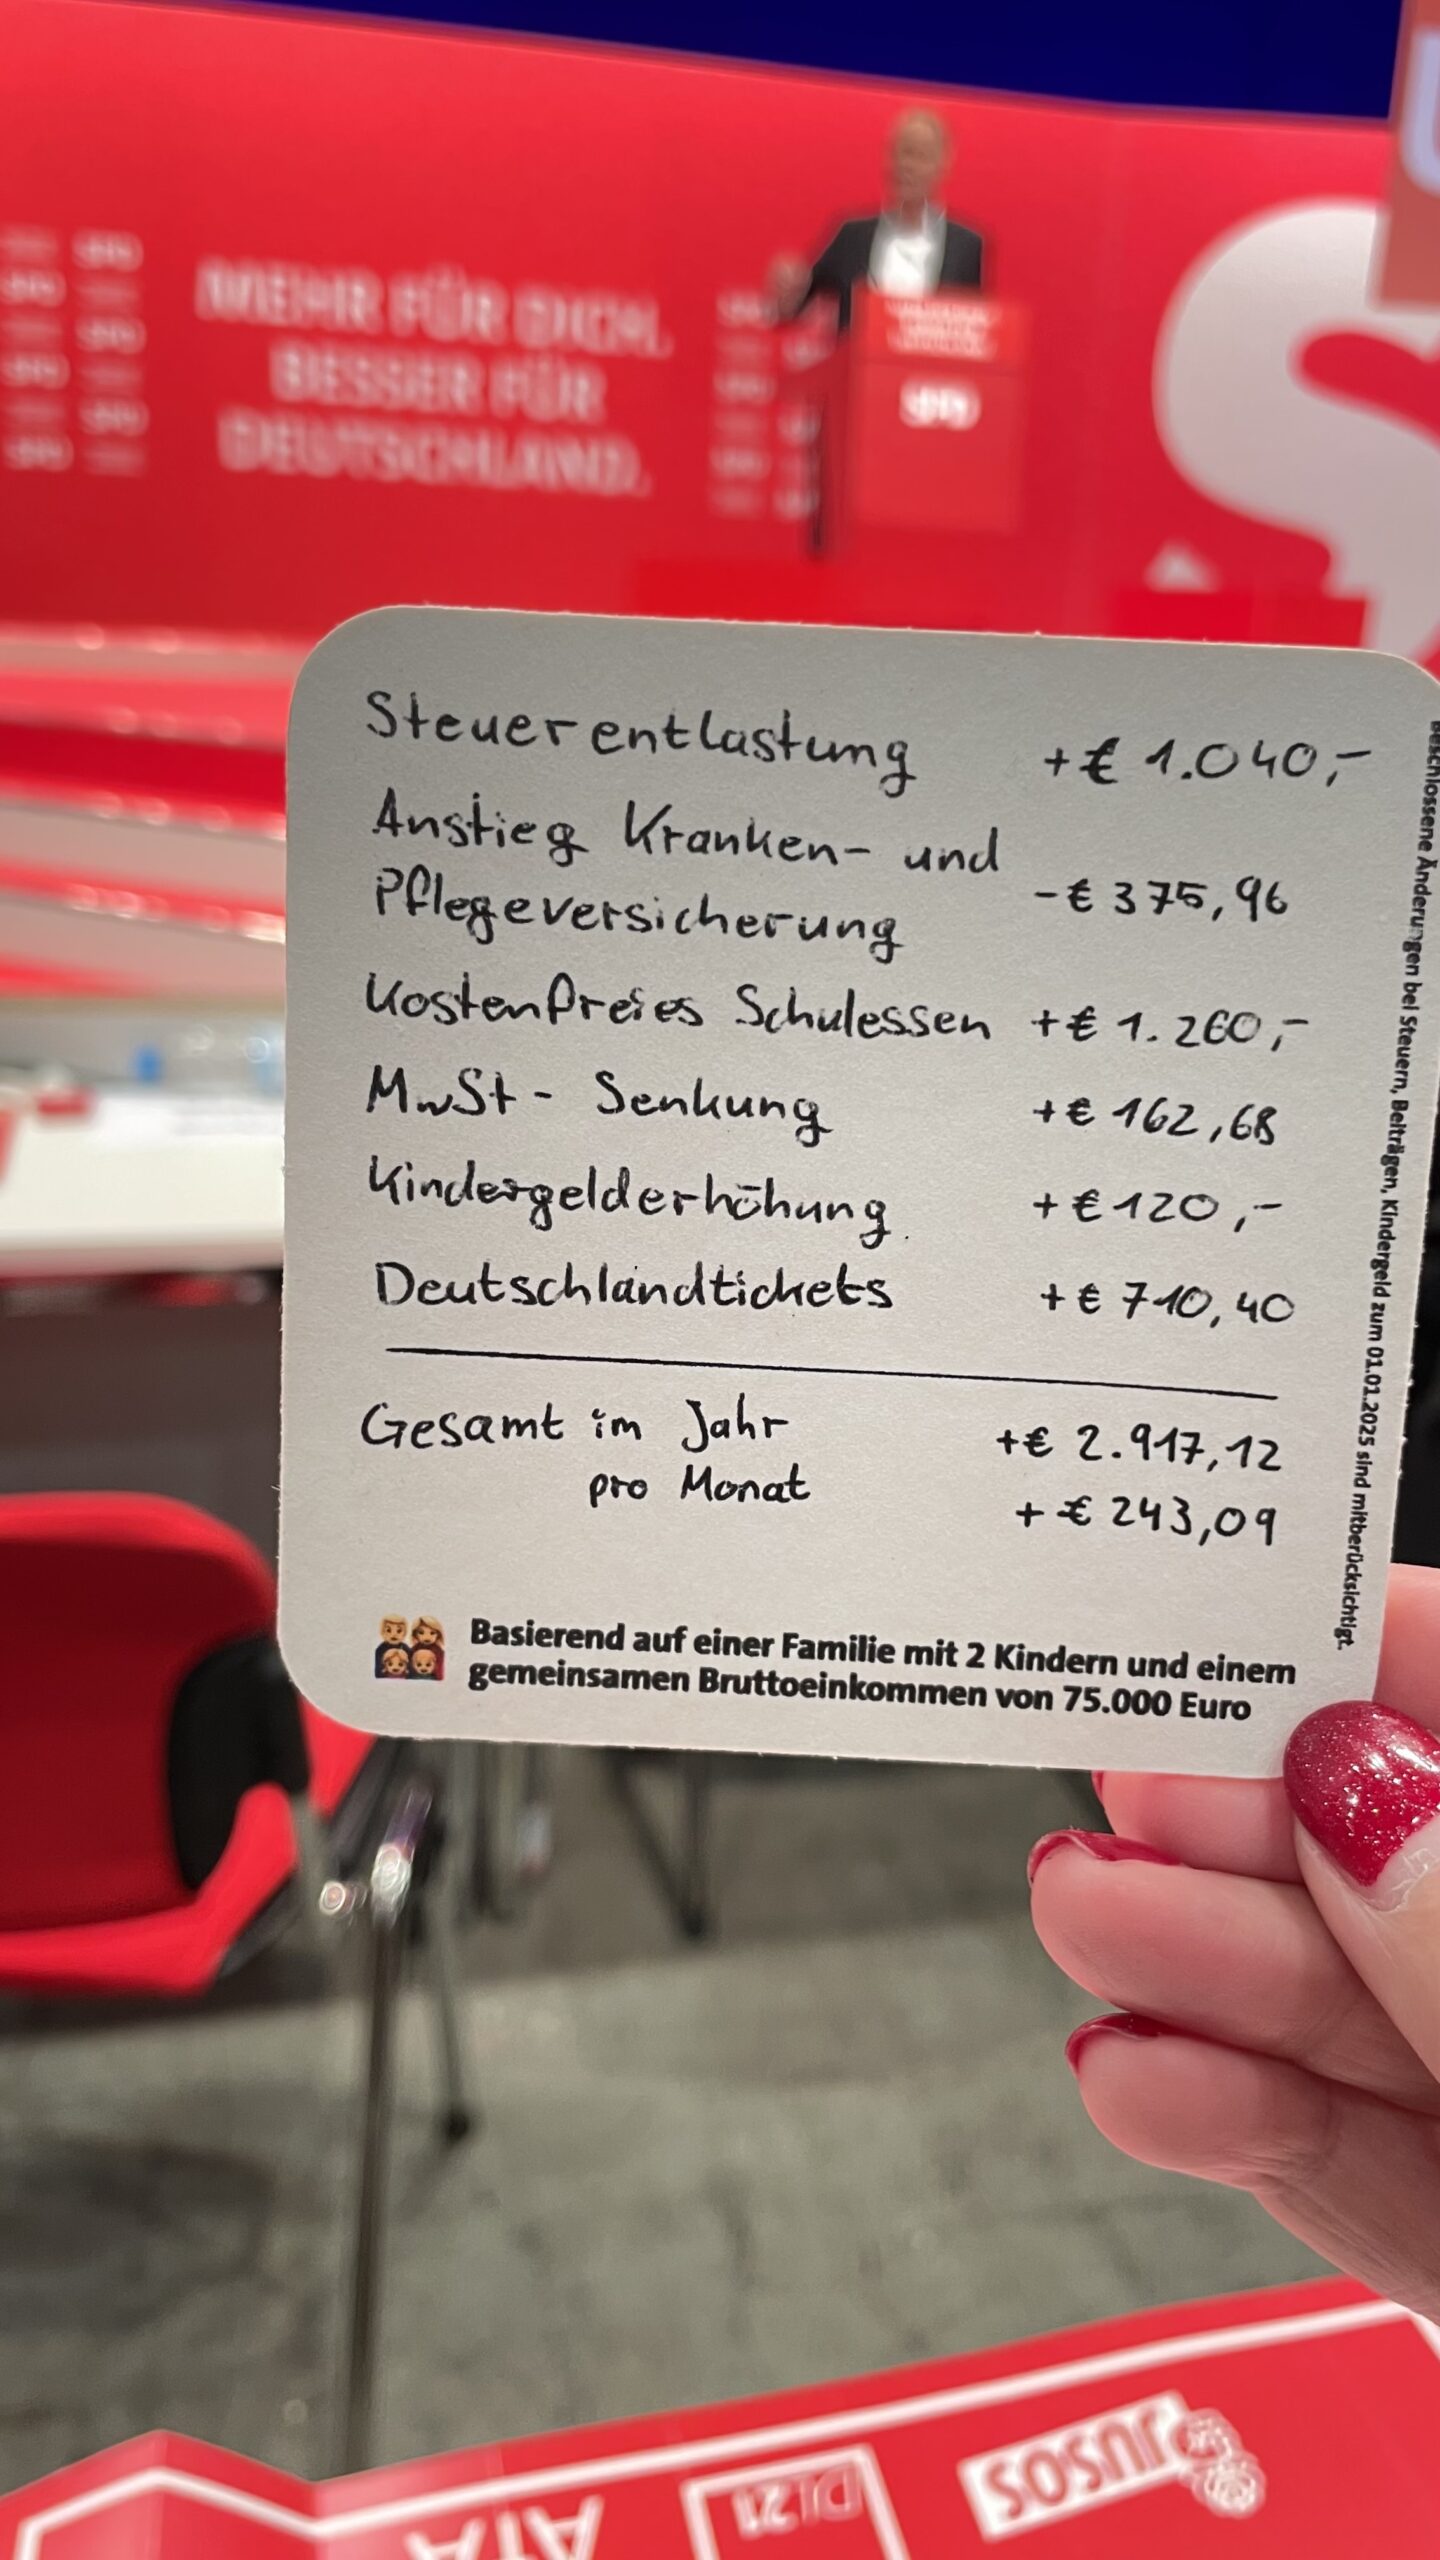 MEHR FÜR DICH.
BESSER FÜR
DEUTSCHLAND.
SPD
Steuerentlastung +€ 1.040,-
Anstieg Kranken- und
Pflegeversicherung -€ 375,96
Kostenfreies Schulessen +€ 1.260,-
MwSt- Senkung +€ 162,68
Kindergelderhöhung +€ 120,-
Deutschlandtickets +€ 710,40
Gesamt im Jahr +€ 2.917,12
pro Monat +€ 243,09
Basierend auf einer Familie mit 2 Kindern und einem
gemeinsamen Bruttoeinkommen von 75.000 Euro
Beschlossene Änderungen bei Steuern, Beiträgen, Kindergeld zum 01.01.2025 sind mitberücksichtigt.
JUSOS
DL21
AfA